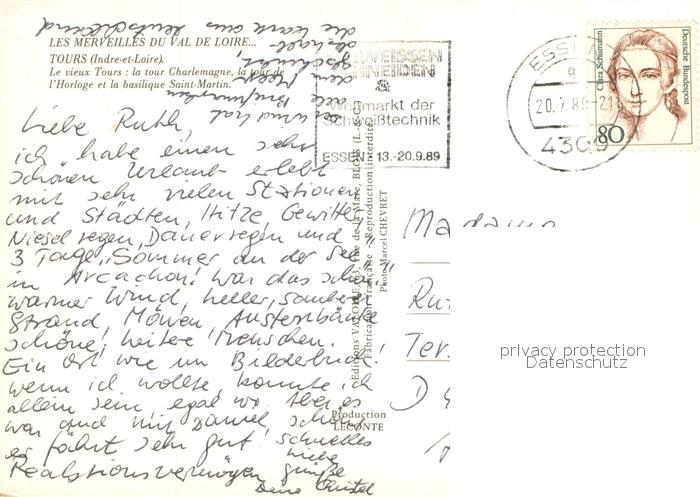 LES MERVEILLES DU VAL DE LOIRE...
TOURS (Indre-et-Loire).
Le vieux Tours : la tour Charlemagne, la tour de
l'Horloge et la basilique Saint-Martin.
Liebe Ruth,
ich habe einen sehr
schönen Urlaub erlebt
mit sehr vielen Stationen
und Städten, Hitze, Gewitter,
Nieselregen, Dauerregen und
3 Tage "Sommer an der See"
in Arcachon! War das schön!
warmer Wind, heller, sauberer
Strand, Möwen, Austernbänke
schöne, heitere Menschen.
Ein Ort wie im Bilderbuch!
wenn ich wollte, konnte ich
allein sein, egal wo. Aber es
war auch mit
es fährt sehr gut! schnelles
Reaktionsvermögen
Liebe
Grüße
Deine Christel
die Karte aus Deutschland
SCHWEISSEN
SCHNEIDEN
&
markt der
Schweißtechnik
ESSEN 13.-20.9.89
ESSEN
20.7.89-21
4300
Clara Schumann
Deutsche Bundespost
80
Editions VALOIRE, 53, rue de la Mare, BLOIS (L.-&-C.)
Fabrication française - Reproduction interdite
Photo Marcel CHEVRET
Production
LECONTE
Madame
Ru
Ter
D
privacy protection
Datenschutz